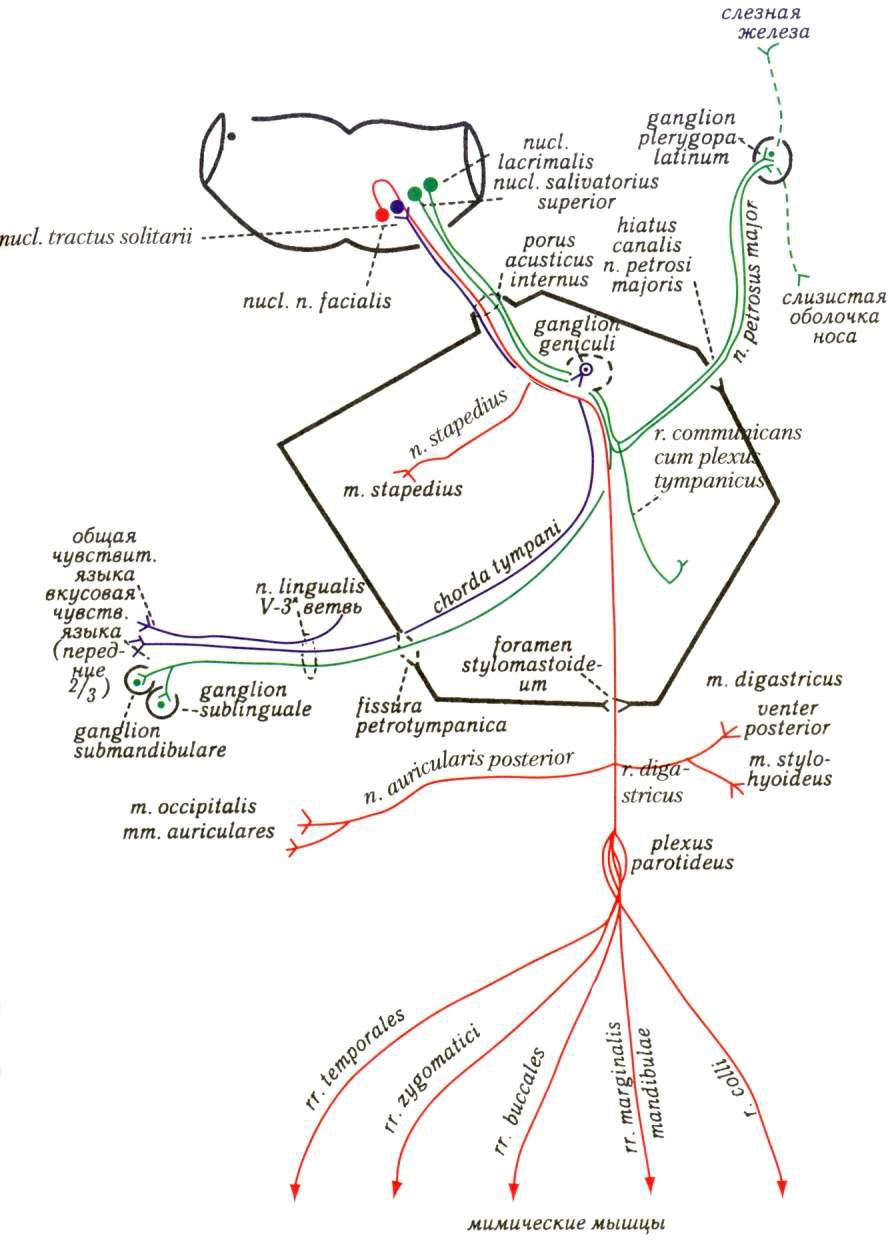 слезная
железа
ganglion
plerygopa-
latinum
nucl.
lacrimalis
nucl. salivatorius
superior
nucl. tractus solitarii
nucl. n. facialis
porus
acusticus
internus
hiatus
canalis
n. petrosi
majoris
n. petrosus major
слизистая
оболочка
носа
ganglion
geniculi
n. stapedius
m. stapedius
r. communicans
cum plexus
tympanicus
общая
чувствит.
языка
вкусовая
чувств.
языка
(перед-
ние
2/3)
n. lingualis
V-3я ветвь
chorda tympani
foramen
stylomastoide-
um
ganglion
sublinguale
ganglion
submandibulare
fissura
petrotympanica
m. digastricus
venter
posterior
m. stylo-
hyoideus
n. auricularis posterior
r. diga-
stricus
m. occipitalis
mm. auriculares
plexus
parotideus
rr. temporales
rr. zygomatici
rr. buccales
rr. marginalis
mandibulae
r. colli
мимические мышцы